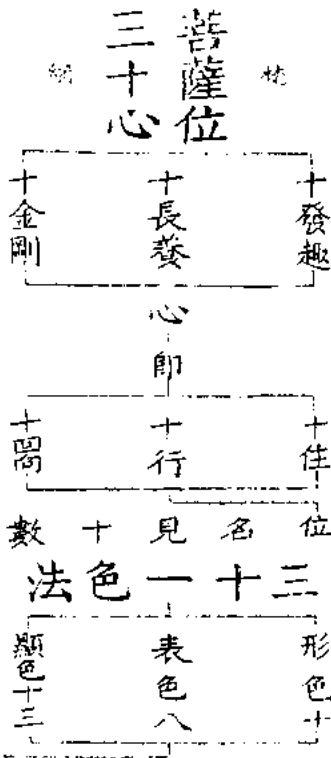 梵
菩薩位
三十心
網
十發趣
十長養
十金剛
心即
十住
十行
十回
位名見十數
三十一色法
形色十
表色八
顯色十三